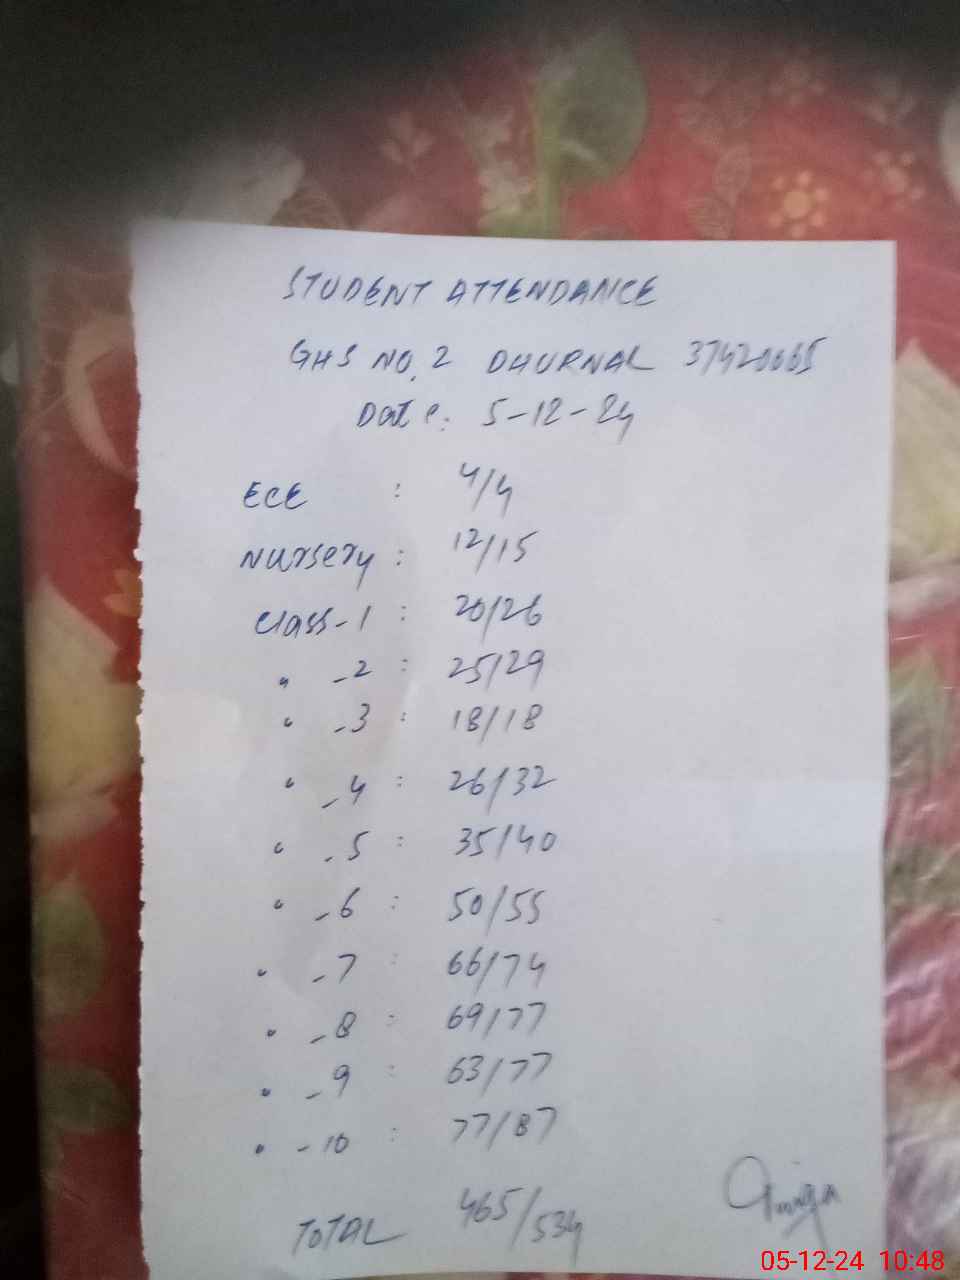 STUDENT ATTENDANCE
GHS NO. 2 DHURNAL 37420665
Date: 5-12-24
ECE : 4/4
Nursery : 12/15
Class-1 : 20/26
" -2 : 25/29
" -3 : 18/18
" -4 : 26/32
" -5 : 35/40
" -6 : 50/55
" -7 : 66/74
" -8 : 69/77
" -9 : 63/77
" -10 : 77/87
TOTAL 465/534
05-12-24 10:48